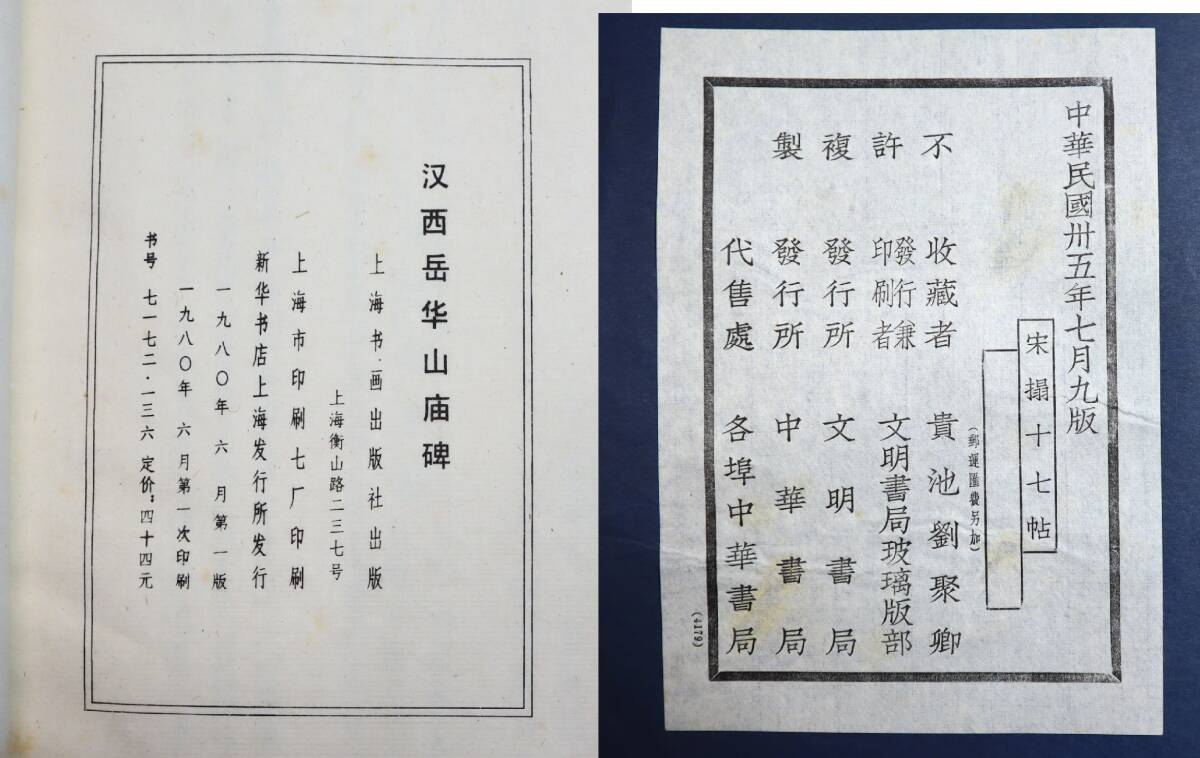 汉西岳华山庙碑
上海书·画出版社出版
上海衡山路二三七号
上海市印刷七厂印刷
新华书店上海发行所发行
一九八〇年六月第一版
一九八〇年六月第一次印刷
书号 七一七二·一三六 定价：四十四元
中華民國卅五年七月九版
宋搨十七帖
（郵運匯費另加）
不許複製
收藏者 貴池劉聚卿
發行兼印刷者 文明書局玻璃版部
發行所 文明書局
發行所 中華書局
代售處 各埠中華書局
(4179)